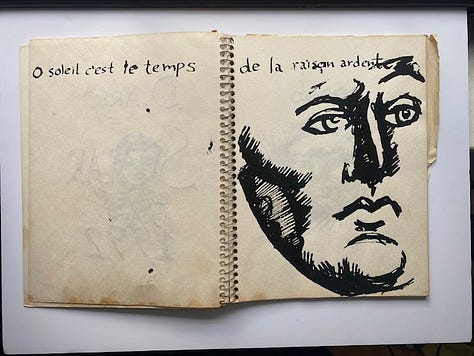 O soleil c'est le temps de la raison ardente